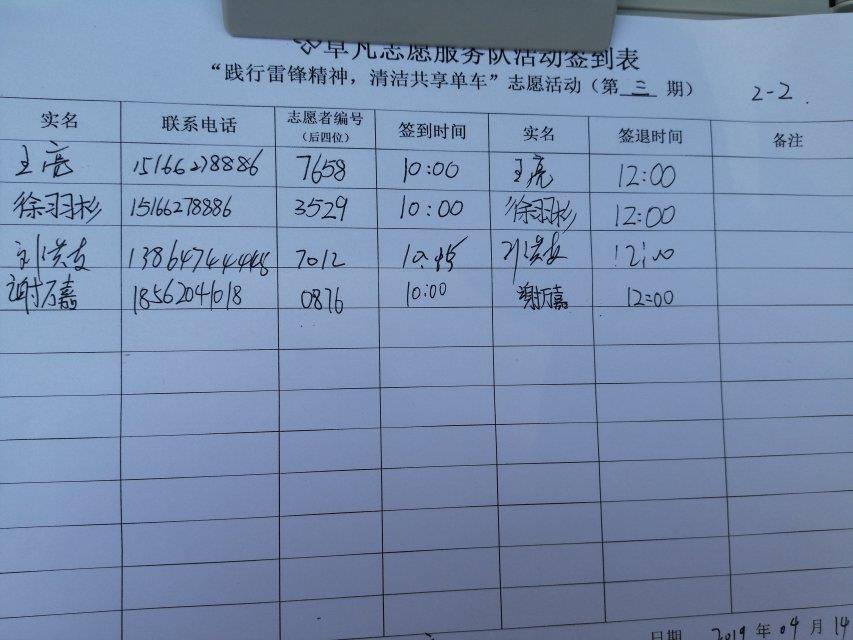 草凡志愿服务队活动签到表
“践行雷锋精神，清洁共享单车”志愿活动（第三期）
2-2.
实名 联系电话 志愿者编号（后四位） 签到时间 实名 签退时间 备注
王亮 15166278886 7658 10:00 王亮 12:00
徐羽杉 15166278886 3529 10:00 徐羽杉 12:00
刘洪友 7012 刘洪友 12:00
谢万嘉 18562041018 0876 10:00 谢万嘉 12:00
日期 2019年04月14